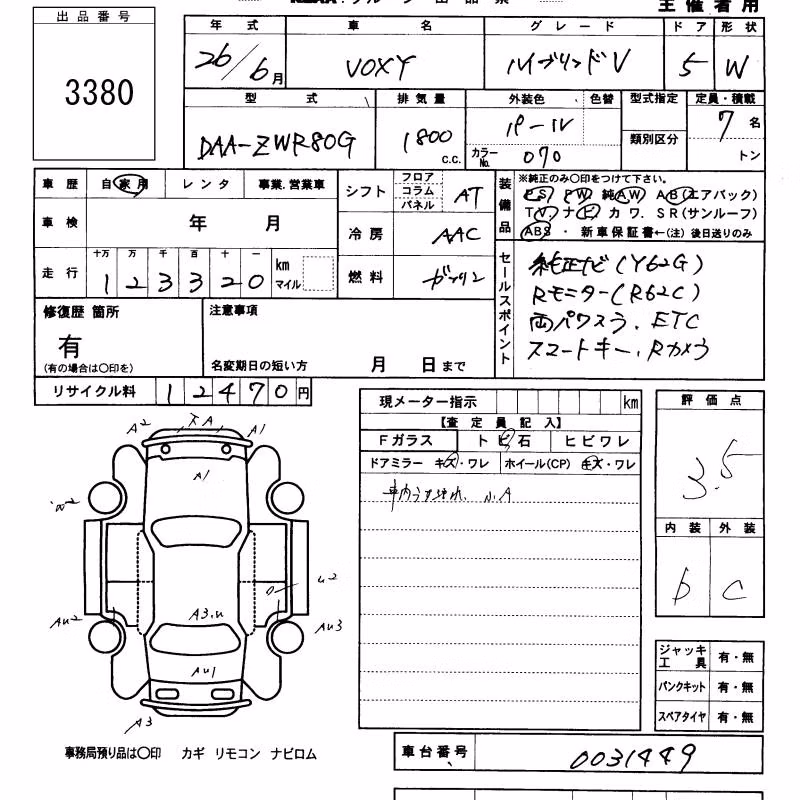 主催者用
出品番号
3380
年式 車名 グレード ドア 形状
26/6月 VOXY ハイブリッドV 5 W
型式 排気量 外装色 色替 型式指定 定員・積載
DAA-ZWR80G 1800 c.c. パール 7名
カラーNo. 070 類別区分 トン
車歴 自家用 レンタ 事業.営業車
シフト フロア コラム パネル AT
装備品 ※純正のみ○印をつけて下さい。
PS PW 純AW AB(エアバック)
TV. ナビ カワ. SR(サンルーフ)
ABS ・ 新車保証書←(注)後日送りのみ
車検 年 月
冷房 AAC
走行 十万 万 千 百 十 一
123320 km マイル
燃料 ガソリン
セールスポイント
純正ナビ(Y62G)
Rモニター(R62C)
両パワスラ. ETC
スマートキー.Rカメラ
修復歴 箇所
有
(有の場合は○印を)
注意事項
名変期日の短い方 月 日まで
リサイクル料 12470円
現メーター指示 km
【査定員記入】
Fガラス トビ石 ヒビワレ
ドアミラー キズ・ワレ ホイール(CP) キズ・ワレ
小A
評価点
3.5
内装 外装
b C
A2 XA A1
A1
u2
Au2 A3.u Au3
Au1
A3
ジャッキ工具 有・無
パンクキット 有・無
スペアタイヤ 有・無
事務局預り品は○印 カギ リモコン ナビロム
車台番号 0031449